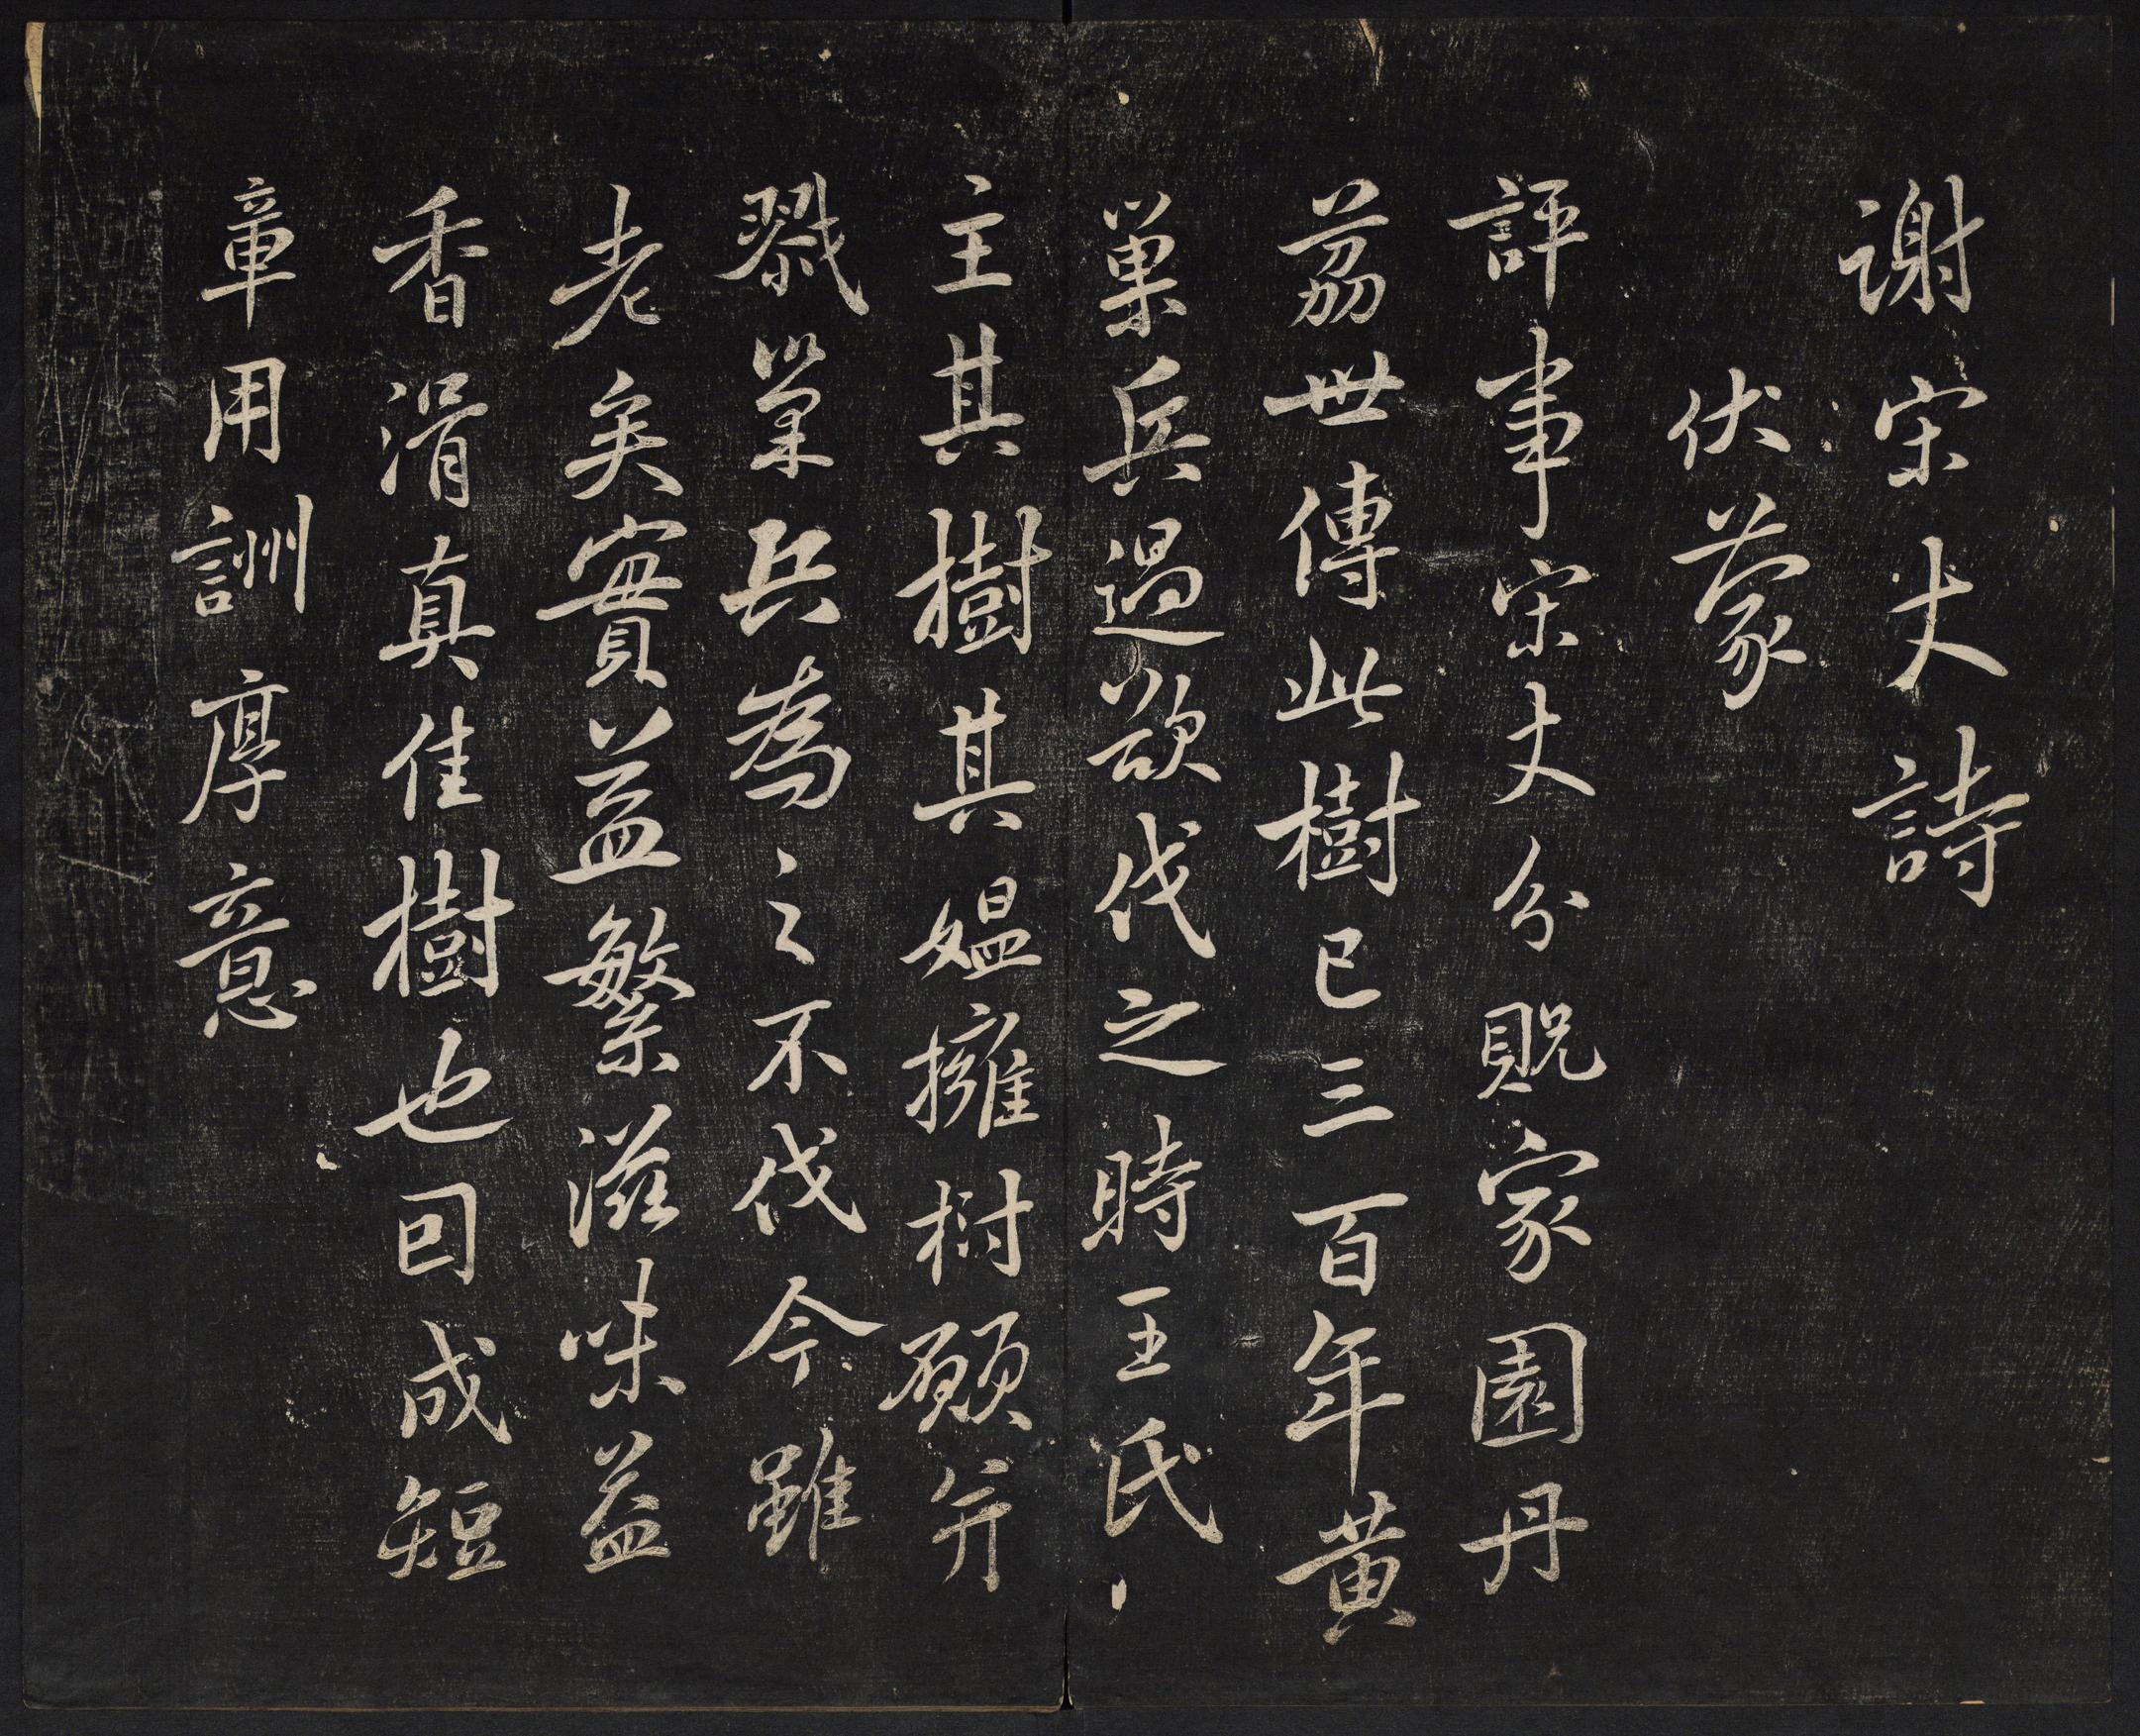 謝宋丈詩
伏蒙
評事宋丈分貺家園丹
荔世傳此樹已三百年黃
巢兵過欲伐之時王氏
主其樹其媪擁樹願并
戮巢兵為之不伐今雖
老矣實益繁滋味益
香滑真佳樹也回成短
章用詶厚意